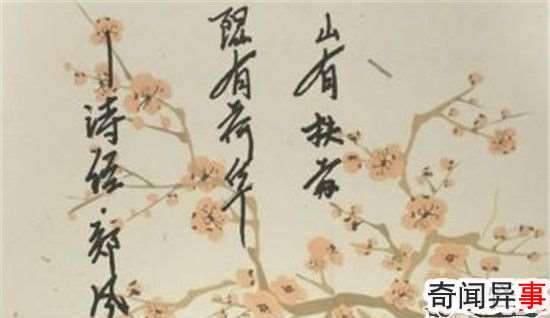 山有扶苏
隰有荷华
—诗经·郑风
奇闻异事